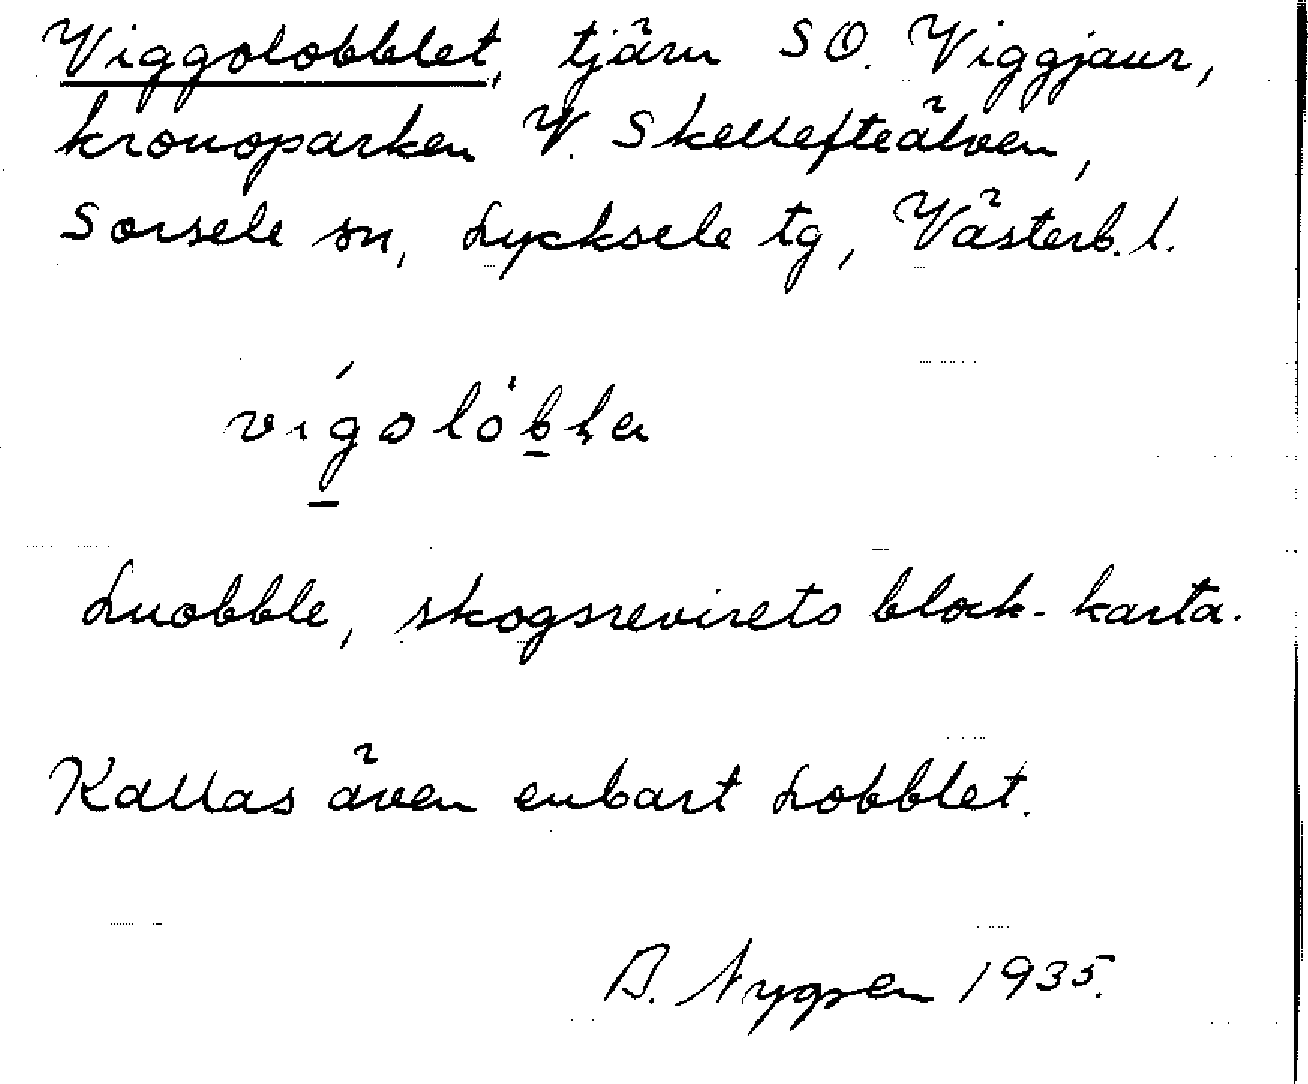 Viggolobblet, tjärn SO. Viggjaur,
kronoparken V. Skellefteälven,
Sorsele sn, Lycksele tg, Västerb. l.
Luobble, skogsrevirets block-karta.
Kallas även enbart Lobblet.
Nygren 1935.